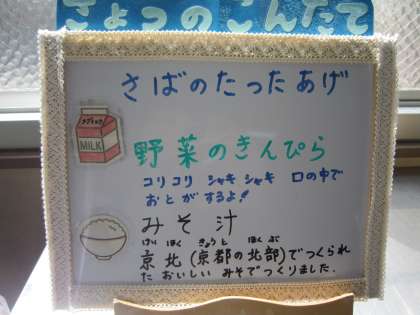 きょうのこんだて
さばのたったあげ
MILK
野菜のきんぴら
コリコリ シャキシャキ 口の中で
おとがするよ!!
みそ汁
けい ほく きょうと ほくぶ
京北(京都の北部)でつくられ
た おいしい みそでつくりました.